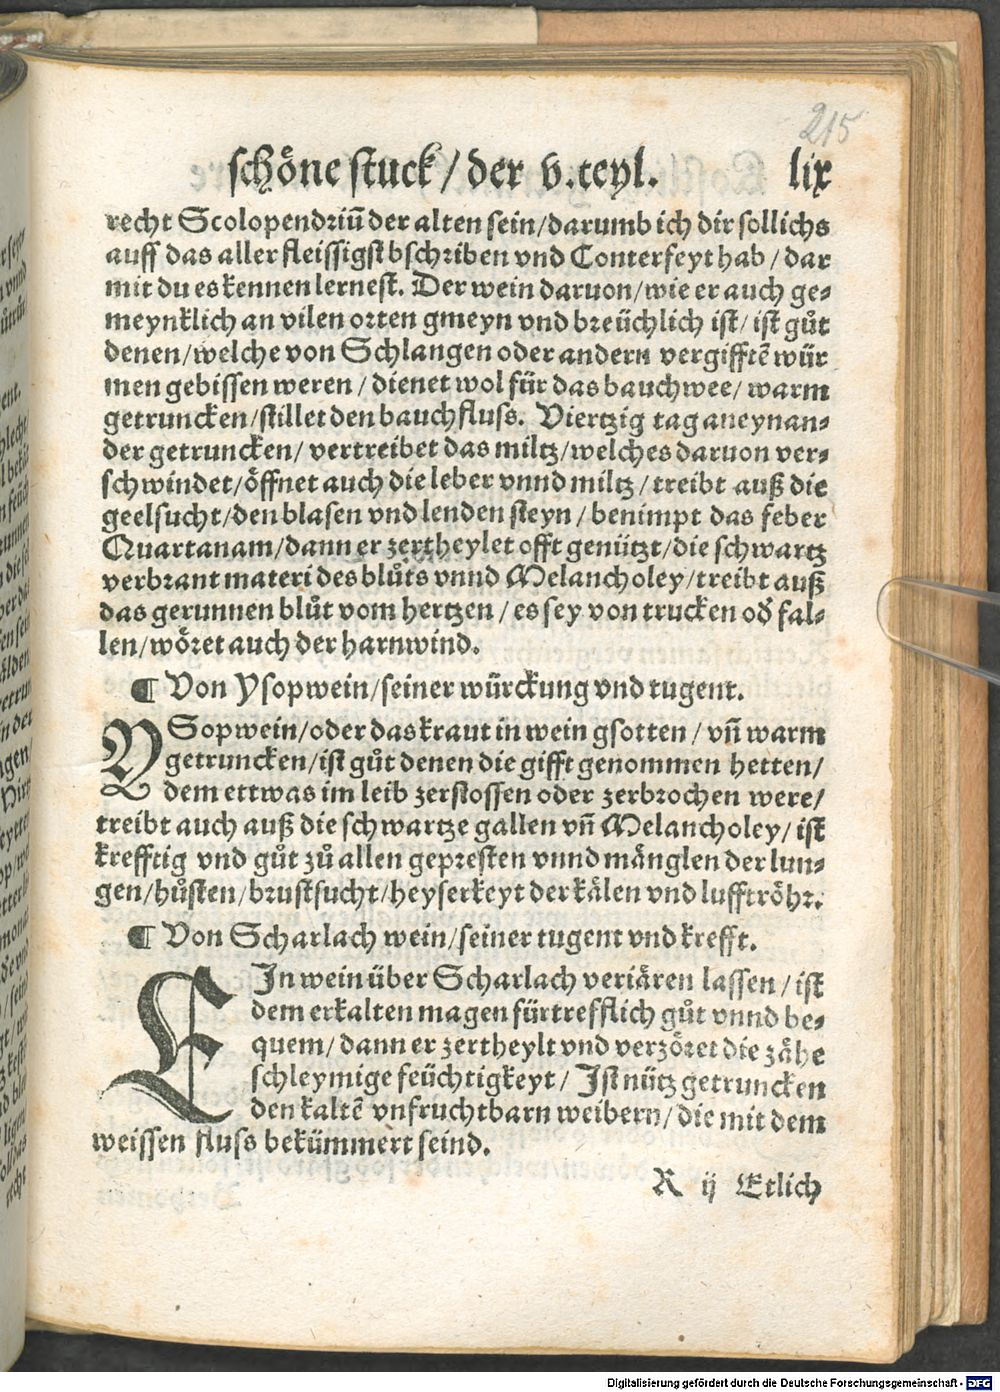 215
schöne stuck / der v. teyl. lix
recht Scolopendriū der alten sein/darumb ich dir sollichs
auff das aller fleissigst bschriben vnd Conterfeyt hab / dar
mit du es kennen lernest. Der wein daruon/wie er auch ge⸗
meynklich an vilen orten gmeyn vnd breüchlich ist/ ist gůt
denen/welche von Schlangen oder andern vergifftē wür
men gebissen weren / dienet wol für das bauchwee/ warm
getruncken/stillet den bauchfluss. Viertzig tag aneynan⸗
der getruncken/ vertreibet das miltz/welches daruon ver⸗
schwindet/öffnet auch die leber vnnd miltz / treibt auß die
geelsucht/den blasen vnd lenden steyn / benimpt das feber
Quartanam/dann er zertheylet offt genützt/die schwartz
verbrant materi des blůts vnnd Melancholey/treibt auß
das gerunnen blůt vom hertzen / es sey von trucken od̓ fal⸗
len/wöret auch der harnwind.
¶ Von Ysopwein/seiner würckung vnd tugent.
YSopwein/oder das kraut in wein gsotten / vn̄ warm
getruncken/ist gůt denen die gifft genommen hetten/
dem ettwas im leib zerstossen oder zerbrochen were/
treibt auch auß die schwartze gallen vn̄ Melancholey/ ist
krefftig vnd gůt zů allen gepresten vnnd mänglen der lun⸗
gen/hůsten/brustsucht/heyserkeyt der kälen vnd lufftröhr.
¶ Von Scharlach wein/seiner tugent vnd krefft.
EIn wein über Scharlach verjären lassen / ist
dem erkalten magen fürtrefflich gůt vnnd be⸗
quem/ dann er zertheylt vnd verzöret die zähe
schleymige feüchtigkeyt / Ist nütz getruncken
den kaltē vnfruchtbarn weibern/die mit dem
weissen fluss bekümmert seind.
R ij Etlich
Digitalisierung gefördert durch die Deutsche Forschungsgemeinschaft - DFG